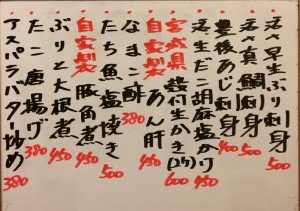 活〆早生ぶり刺身
活〆真鯛刺身 500
豊後あじ刺身 400
活生だこ胡麻塩かけ 450
宮城県 殻付生かき(2ケ) 600
自家製 あん肝 450
なまこ酢 380
たち魚塩焼き 500
自家製 豚角煮 450
ぶりと大根煮 450
たこ唐揚げ 380
アスパラバタ炒め 380